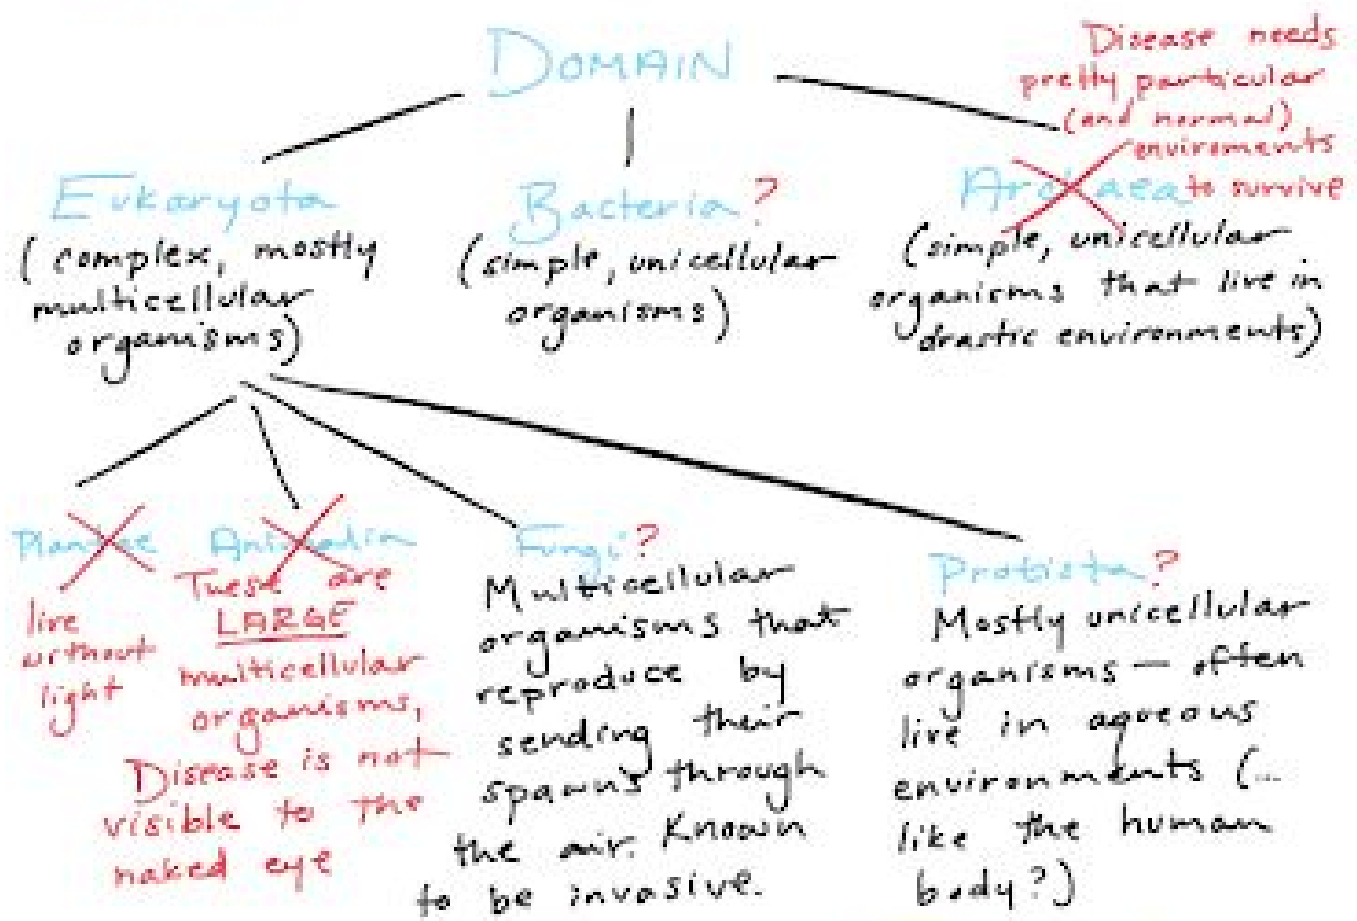 DOMAIN
Disease needs
pretty particular
(and normal)
enviroments
to survive
Eukaryota
(complex, mostly
multicellular
organisms)
Bacteria?
(simple, unicellular
organisms)
Archaea
(simple, unicellular
organisms that live in
drastic environments)
Plantae
live
without
light
Animalia
These are
LARGE
multicellular
organisms,
Disease is not
visible to the
naked eye
Fungi?
Multicellular
organisms that
reproduce by
sending their
spawns through
the air. Known
to be invasive.
Protista?
Mostly unicellular
organisms — often
live in aqeous
environments (...
like the human
body?)